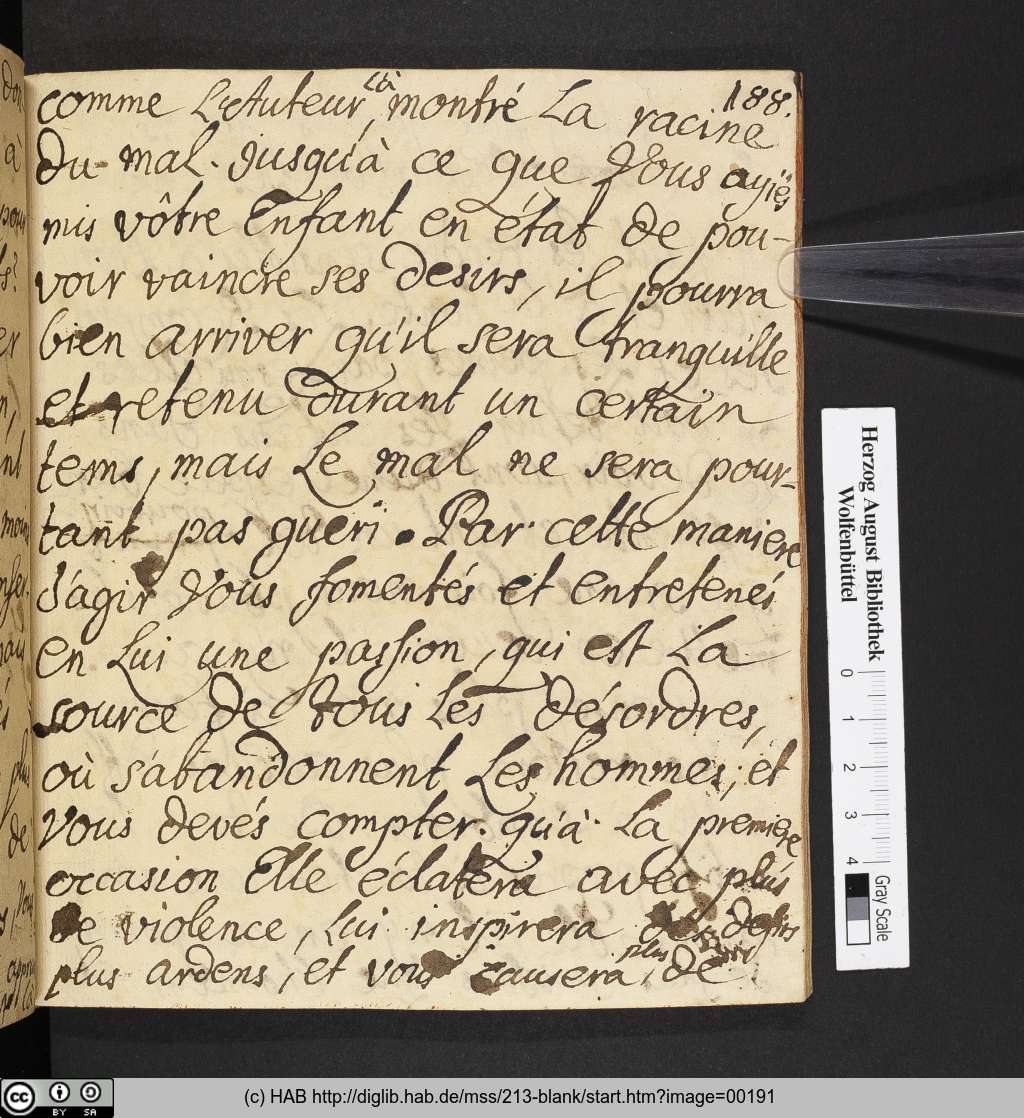 188.
comme L'Auteur l'à montré La racine
du mal. jusqu'à ce que Vous ayiés
mis vôtre Enfant en état de pou-
voir vaincre ses desirs, il pourra
bien arriver qu'il sera tranquille
et retenu durant un certain
tems, mais Le mal ne sera pour-
tant pas gueri. Par cette maniere
d'agir Vous fomentés et entretenés
en Lui une passion, qui est La
source de tous Les désordres,
où s'abandonnent Les hommes, et
Vous devés compter. qu'à La premiere
occasion Elle éclatera avec plus
de violence, Lui inspirera des desirs
plus ardens, et vous causera plus de
Herzog August Bibliothek
Wolfenbüttel
0 1 2 3 4
Gray Scale
cc BY SA
(c) HAB http://diglib.hab.de/mss/213-blank/start.htm?image=00191